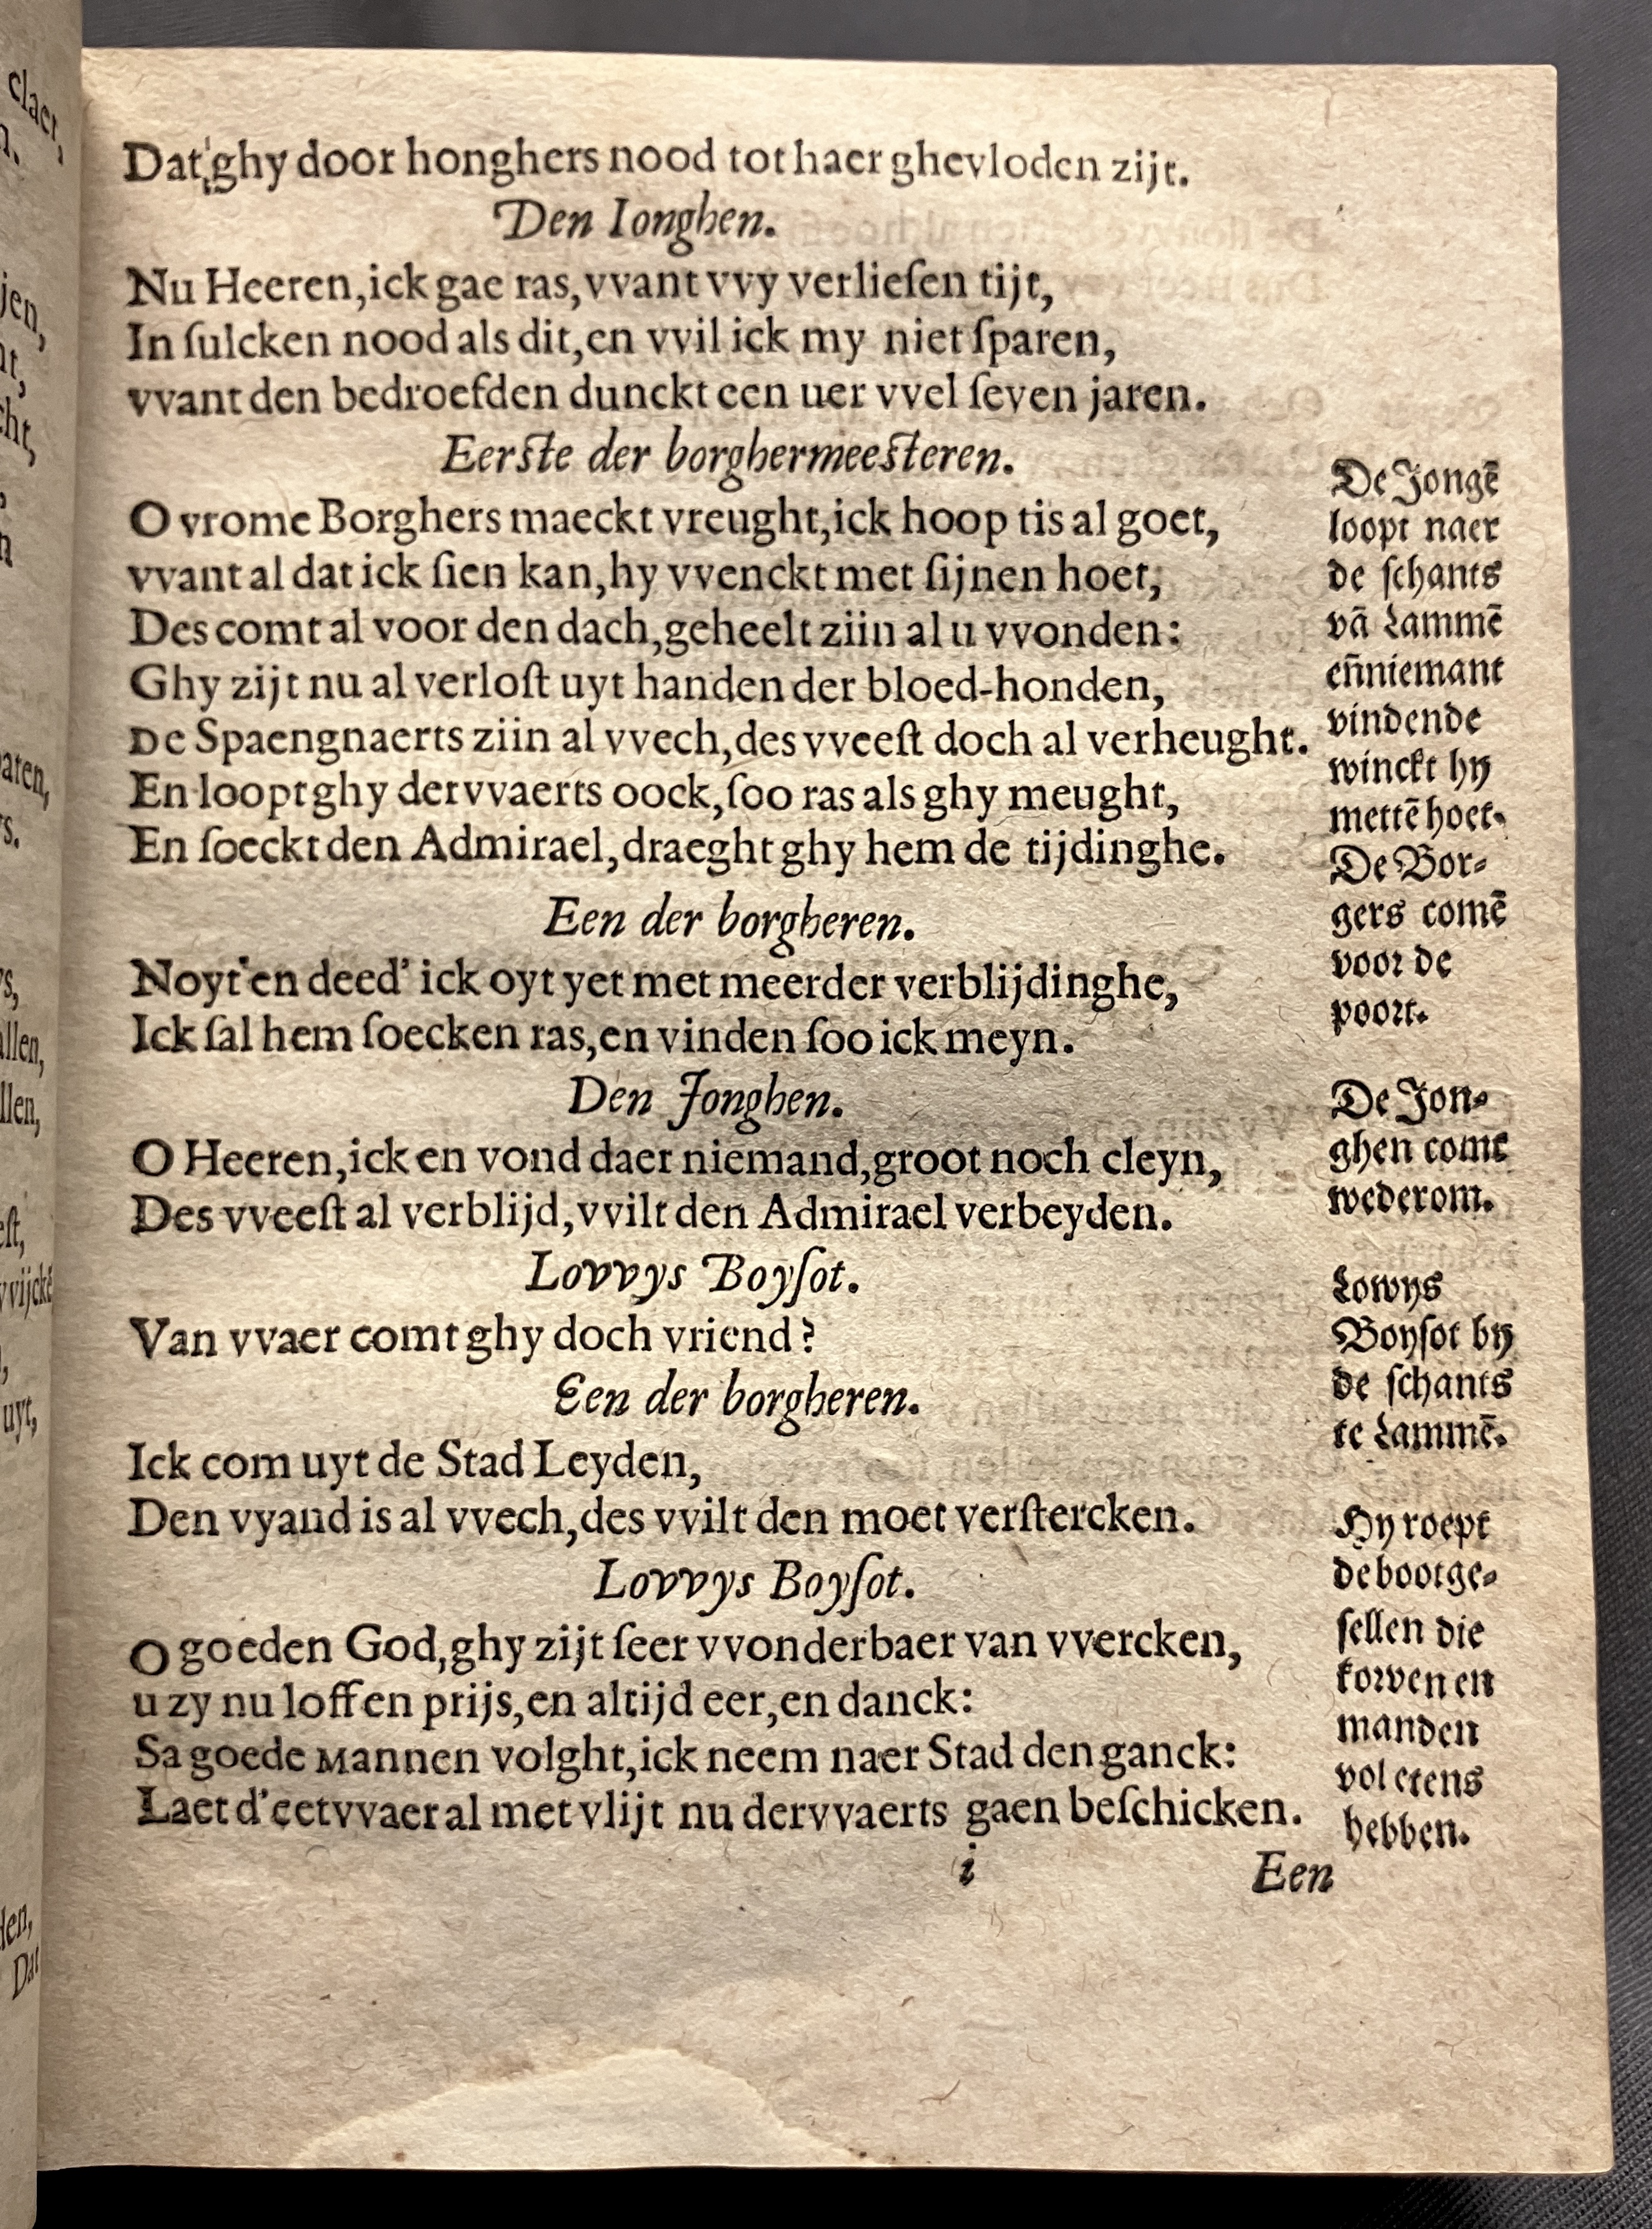 Dat ghy door honghers nood tot haer ghevloden zijt.
Den Ionghen.
Nu Heeren, ick gae ras, vvant vvy verlieſen tijt,
In ſulcken nood als dit, en vvil ick my niet ſparen,
vvant den bedroefden dunckt een uer vvel ſeven jaren.
Eerſte der borghermeeſteren.
O vrome Borghers maeckt vreught, ick hoop tis al goet,
vvant al dat ick ſien kan, hy vvenckt met ſijnen hoet,
Des comt al voor den dach, geheelt ziin al u vvonden:
Ghy zijt nu al verloſt uyt handen der bloed-honden,
De Spaengnaerts ziin al vvech, des vveeſt doch al verheught.
En loopt ghy dervvaerts oock, ſoo ras als ghy meught,
En ſoeckt den Admirael, draeght ghy hem de tijdinghe.
Een der borgheren.
Noyt en deed' ick oyt yet met meerder verblijdinghe,
Ick ſal hem ſoecken ras, en vinden ſoo ick meyn.
Den Jonghen.
O Heeren, ick en vond daer niemand, groot noch cleyn,
Des vveeſt al verblijd, vvilt den Admirael verbeyden.
Lovvys Boyſot.
Van vvaer comt ghy doch vriend?
Een der borgheren.
Ick com uyt de Stad Leyden,
Den vyand is al vvech, des vvilt den moet verſtercken.
Lovvys Boyſot.
O goeden God, ghy zijt ſeer vvonderbaer van vvercken,
u zy nu loff en prijs, en altijd eer, en danck:
Sa goede Mannen volght, ick neem naer Stad den ganck:
Laet d'eetvvaer al met vlijt nu dervvaerts gaen beſchicken.
i
Een
De Jongē
loopt naer
de ſchants
vā Lammē
en̄ niemant
vindende
winckt hy
mettē hoet.
De Bor⸗
gers comē
voor de
poort.
De Jon⸗
ghen comt
wederom.
Lowys
Boyſot by
de ſchants
te Lammē.
Hy roept
de bootge⸗
ſellen die
korven en
manden
vol etens
hebben.